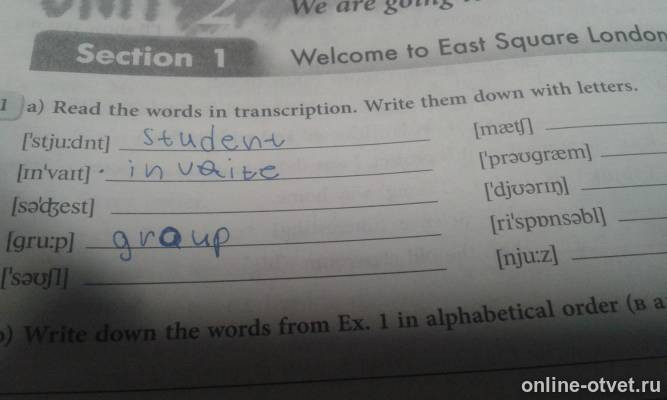 We are going
Section 1 Welcome to East Square London
1 a) Read the words in transcription. Write them down with letters.
['stju:dnt] student
[ɪn'vaɪt] invaite
[sə'dʒest]
[gru:p] group
['səʊʃl]
[mætʃ]
['prəʊgræm]
['djʊərɪŋ]
[ri'spɒnsəbl]
[nju:z]
b) Write down the words from Ex. 1 in alphabetical order (в а
online-otvet.ru